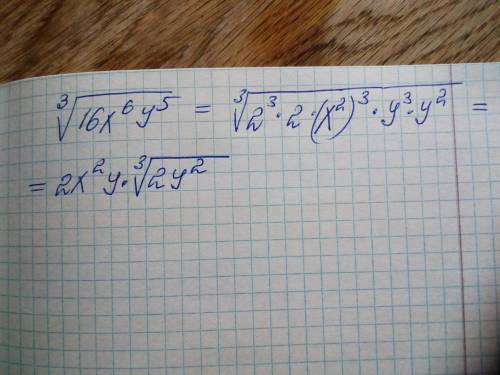 ∛(16x⁶y⁵) = ∛(2³·2·(x²)³·y³·y²) =
= 2x²y·∛(2y²)